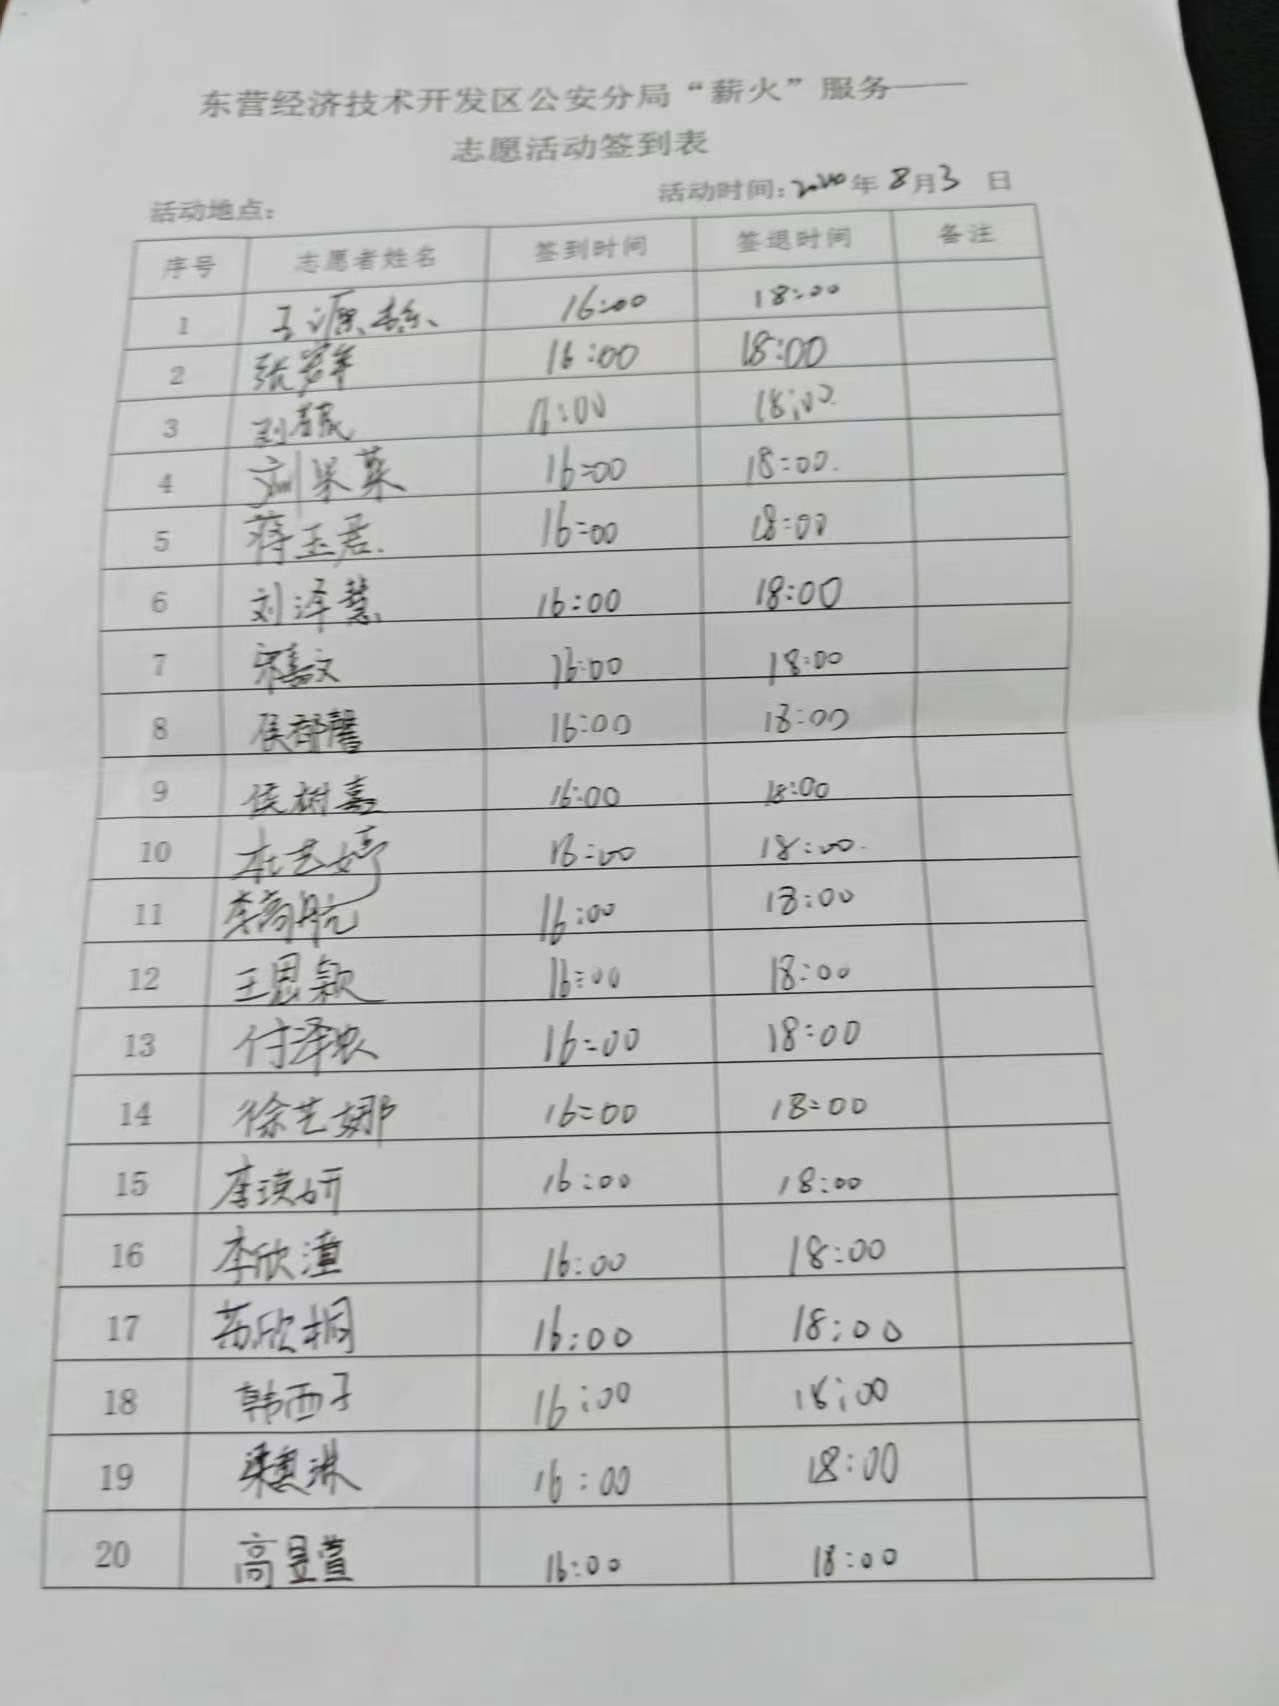 东营经济技术开发区公安分局“薪火”服务——
志愿活动签到表
活动地点： 活动时间：2020年 8月3 日
序号 志愿者姓名 签到时间 签退时间 备注
1 16:00 18:00
2 张 16:00 18:00
3 :00 18:00
4 刘果英 16:00 18:00.
5 蒋玉君. 16:00 18:00
6 刘泽慧 16:00 18:00
7 宋嘉文 16:00 18:00
8 侯郡馨 16:00 18:00
9 侯树嘉 16:00 18:00
10 杜艺婷 16:00 18:00.
11 李高航 16:00 18:00
12 王思颖 16:00 18:00
13 付泽 16:00 18:00
14 徐艺娜 16:00 18:00
15 李瑛妍 16:00 18:00
16 李欣潼 16:00 18:00
17 苏欣桐 16:00 18:00
18 韩西子 16:00 18:00
19 梁惠琳 16:00 18:00
20 高昱萱 16:00 18:00